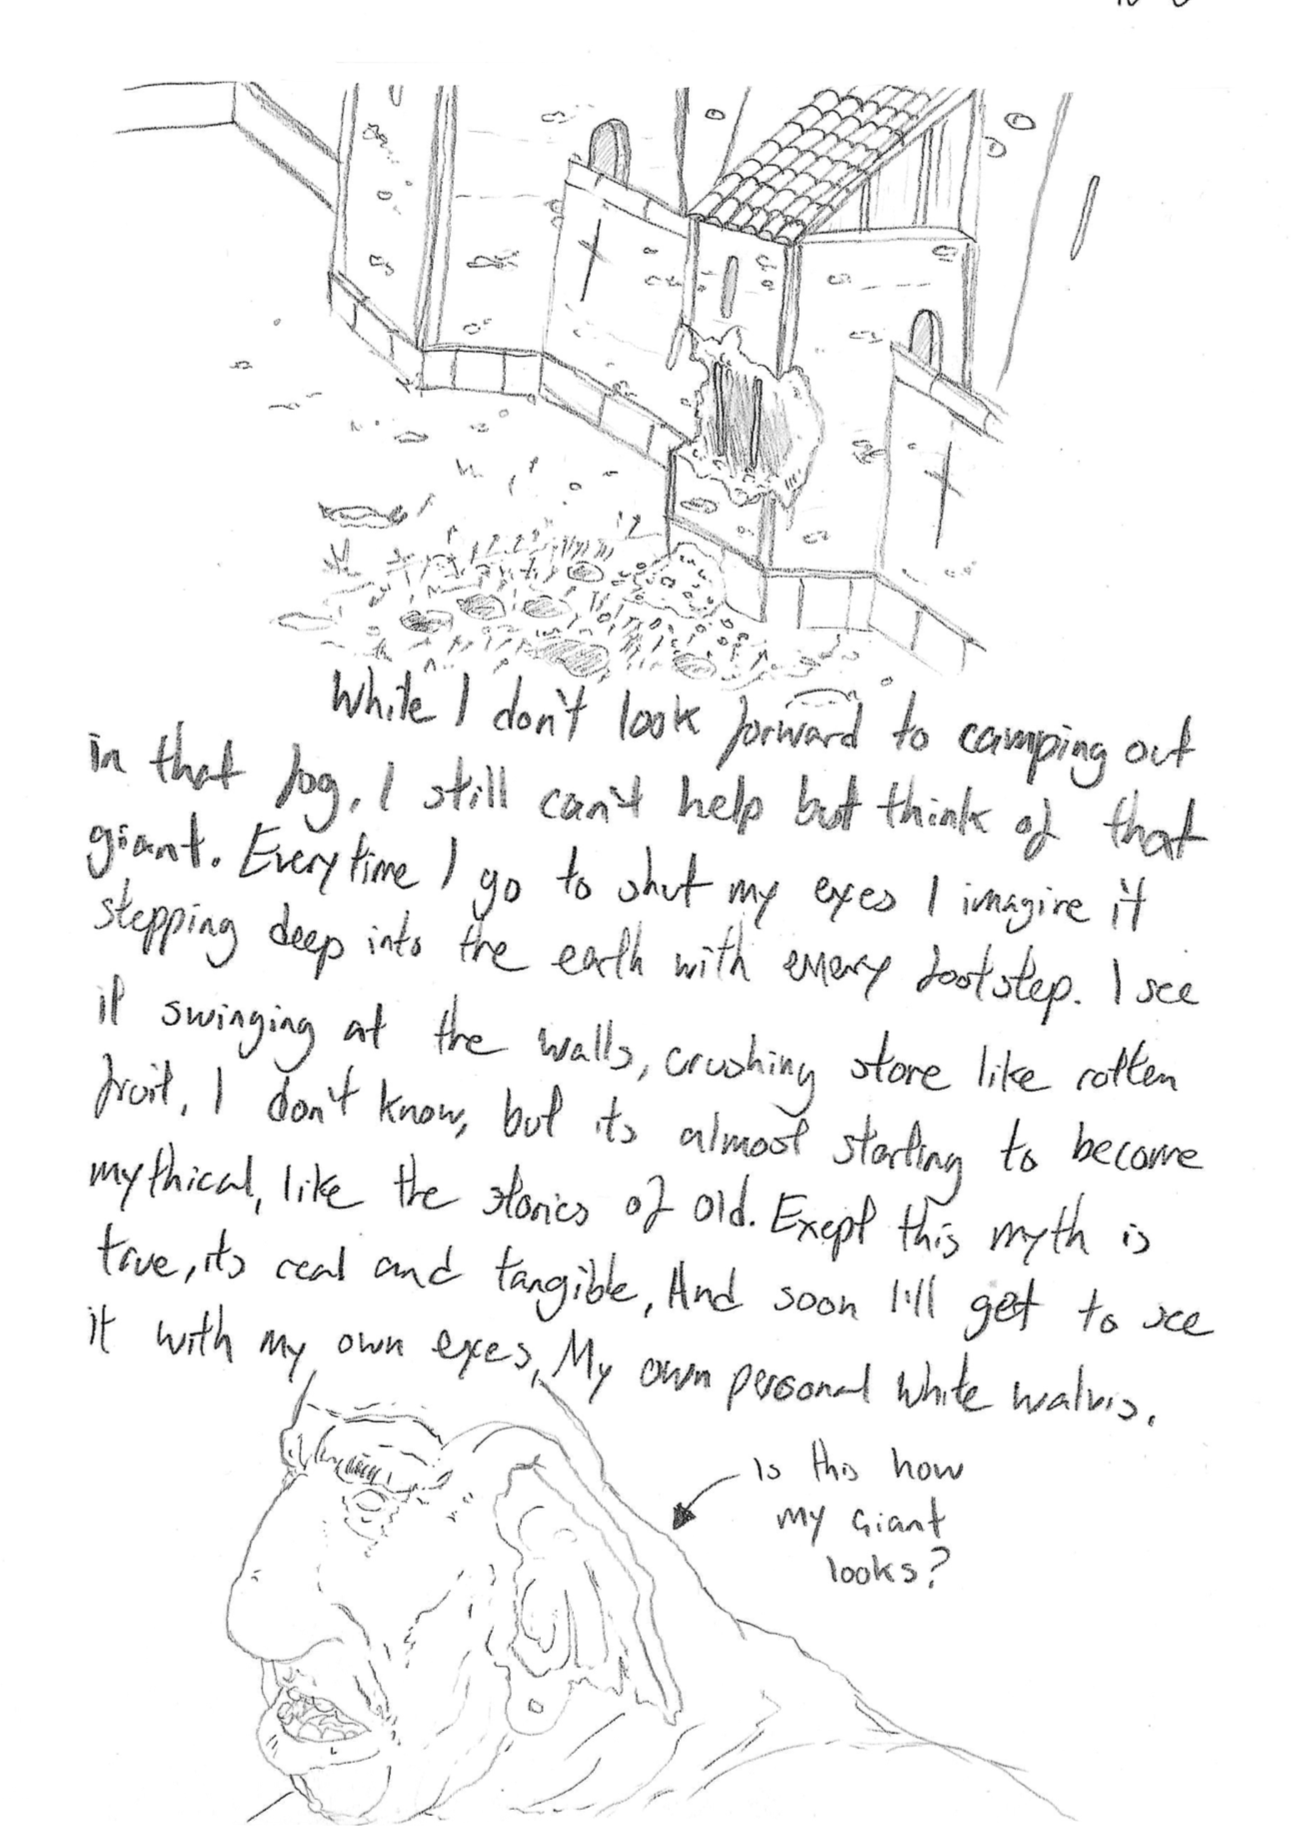 While I don't look forward to camping out
in that fog, I still can't help but think of that
giant. Everytime I go to shut my eyes I imagine it
stepping deep into the earth with every footstep. I see
it swinging at the walls, crushing stone like rotten
fruit, I don't know, but its almost starting to become
mythical, like the stories of old. Exept this myth is
true, its real and tangible, And soon I'll get to see
it with my own eyes, My own personal white walvis.
Is this how
my Giant
looks?